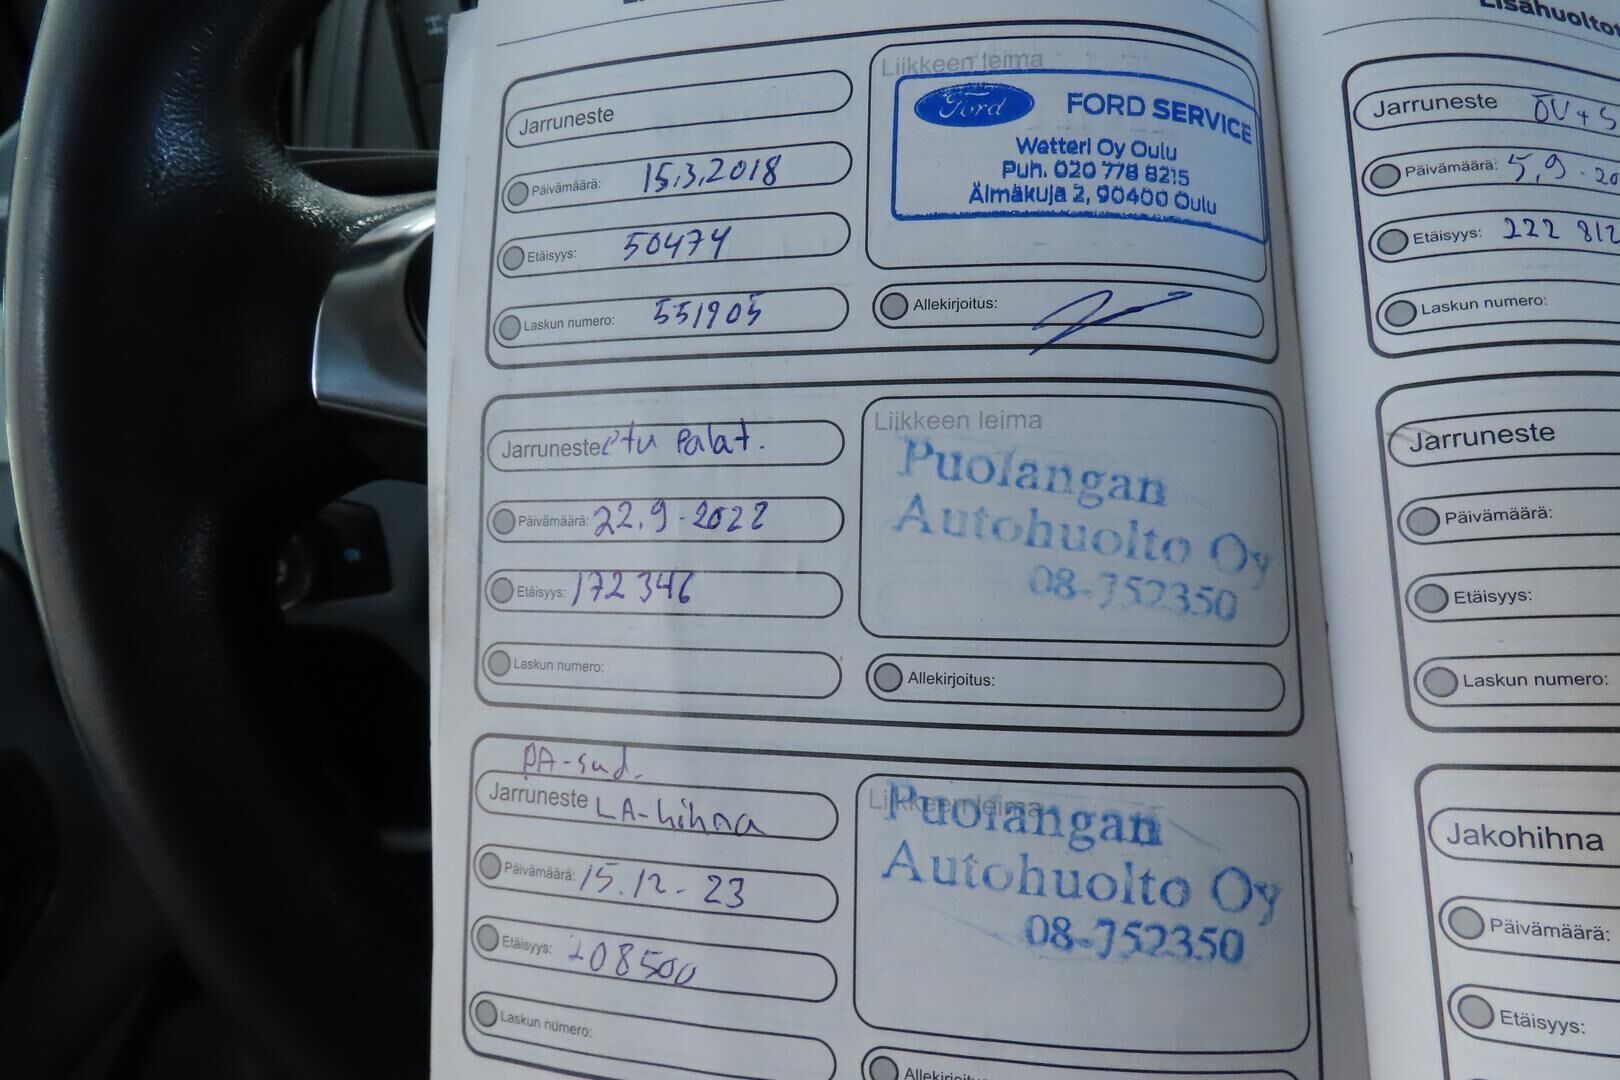 Jarruneste
Päivämäärä: 15.3.2018
Etäisyys: 50474
Laskun numero: 551905
Liikkeen leima
Ford FORD SERVICE
Wetteri Oy Oulu
Puh. 020 778 8215
Älmäkuja 2, 90400 Oulu
Allekirjoitus:
Jarruneste etu palat.
Päivämäärä: 22.9-2022
Etäisyys: 172346
Laskun numero:
Liikkeen leima
Puolangan
Autohuolto Oy
08-752350
Allekirjoitus:
PA-sud.
Jarruneste LA-hihna
Päivämäärä: 15.12-23
Etäisyys: 208500
Laskun numero:
Liikkeen leima
Puolangan
Autohuolto Oy
08-752350
Allekirjoitus:
Jarruneste ÖV+S
Päivämäärä: 5.9-20
Etäisyys: 222 812
Laskun numero:
Jarruneste
Päivämäärä:
Etäisyys:
Laskun numero:
Jakohihna
Päivämäärä:
Etäisyys: